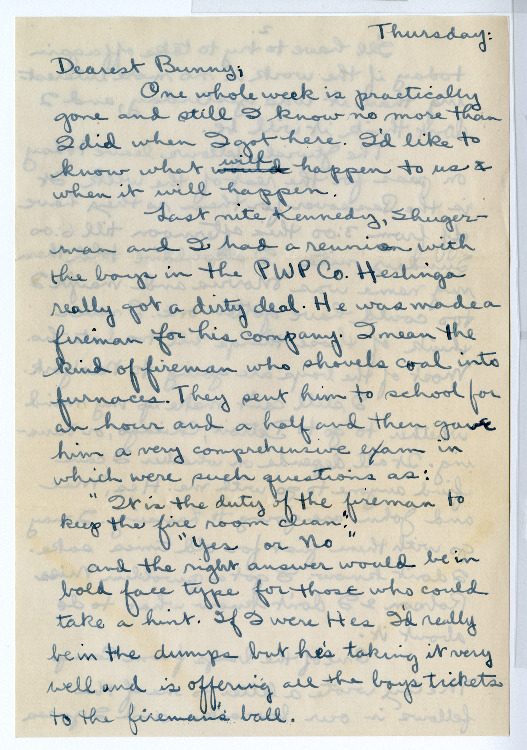 Thursday:
Dearest Bunny;
One whole week is practically
gone and still I know no more than
I did when I got here. I'd like to
know what would will happen to us &
when it will happen.
Last nite Kennedy, Shuger-
man and I had a reunion with
the boys in the PWP Co. Heslinga
really got a dirty deal. He was made a
fireman for his company. I mean the
kind of fireman who shovels coal into
furnaces. They sent him to school for
an hour and a half and then gave
him a very comprehensive exam in
which were such questions as:
"It is the duty of the fireman to
keep the fire room clean."
"Yes or No"
and the right answer would be in
bold face type for those who could
take a hint. If I were Hes I'd really
be in the dumps but he's taking it very
well and is offering all the boys tickets
to the fireman's ball.